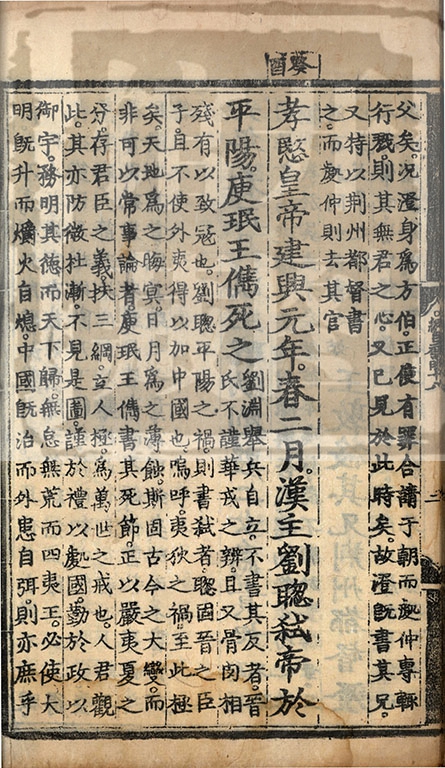 癸酉
父矣。况澄身爲方伯。正使有罪合請于朝而處仲專輒
行戮。則其無君之心。又已見於此時矣。故澄旣書其兄。
又特以荆州都督書
之。而處仲則去其官
孝愍皇帝建興元年。春二月。漢主劉聰弑帝於
平陽。庾珉王儁死之
劉淵擧兵自立。不書其反者。晉
氏不謹華戎之辨。且又骨肉相
殘有以致寇也。劉聰平陽之禍。則書弑者。聰固晉之臣
子。且不使外夷得以加中國也。嗚呼。夷狄之禍至此極
矣。天地爲之晦冥。日月爲之薄蝕。斯固古今之大變。而
非可以常事論者。庾珉王儁書其死節。正以嚴夷夏之
分。存君臣之義。扶三綱。立人極。爲萬世之戒也。人君觀
此。其亦防微杜漸。不見是圖。謹於禮以處國。勤於政以
御宇。務明其德而天下歸。無怠無荒而四夷王。必使大
明旣升而爝火自熄。中國旣治而外患自弭。則亦庶乎